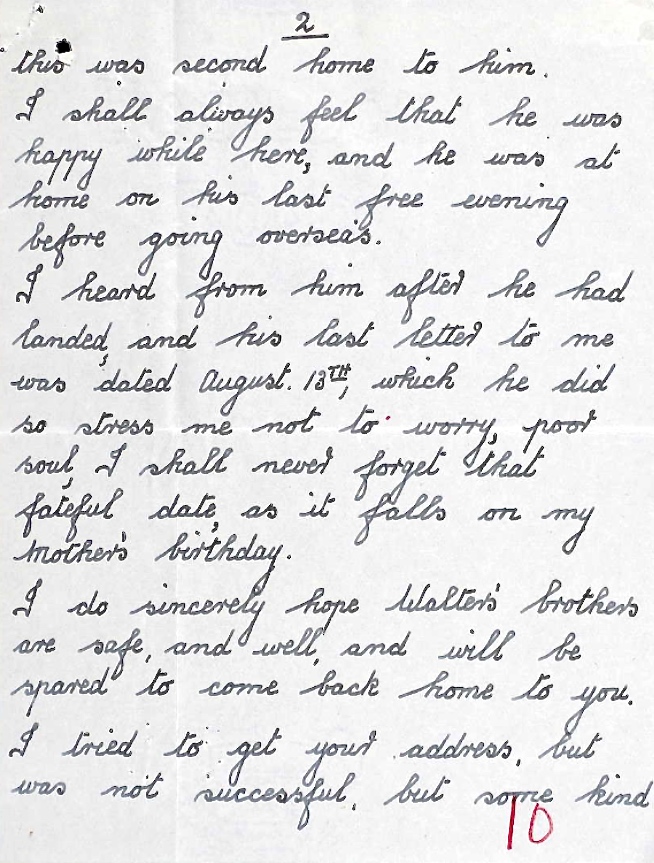 2
this was second home to him.
I shall always feel that he was
happy while here, and he was at
home on his last free evening
before going oversea's.
I heard from him after he had
landed, and his last letter to me
was dated August. 13TH, which he did
so stress me not to worry, poor
soul, I shall never forget that
fateful date, as it falls on my
Mother's birthday.
I do sincerely hope Walter's brothers
are safe, and well, and will be
spared to come back home to you.
I tried to get your address, but
was not successful, but some kind
10